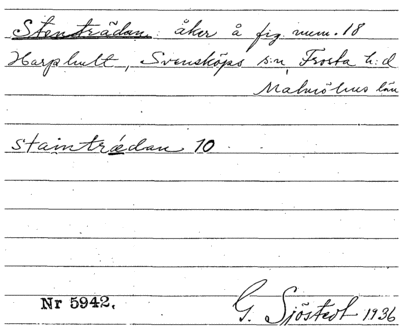 Stenträdan: åker å fig. num. 18
Harphult, Svensköps s:n, Frosta h:d
Malmöhus län
staintrǽdan 10.
Nr 5942.
G. Sjöstedt 1936